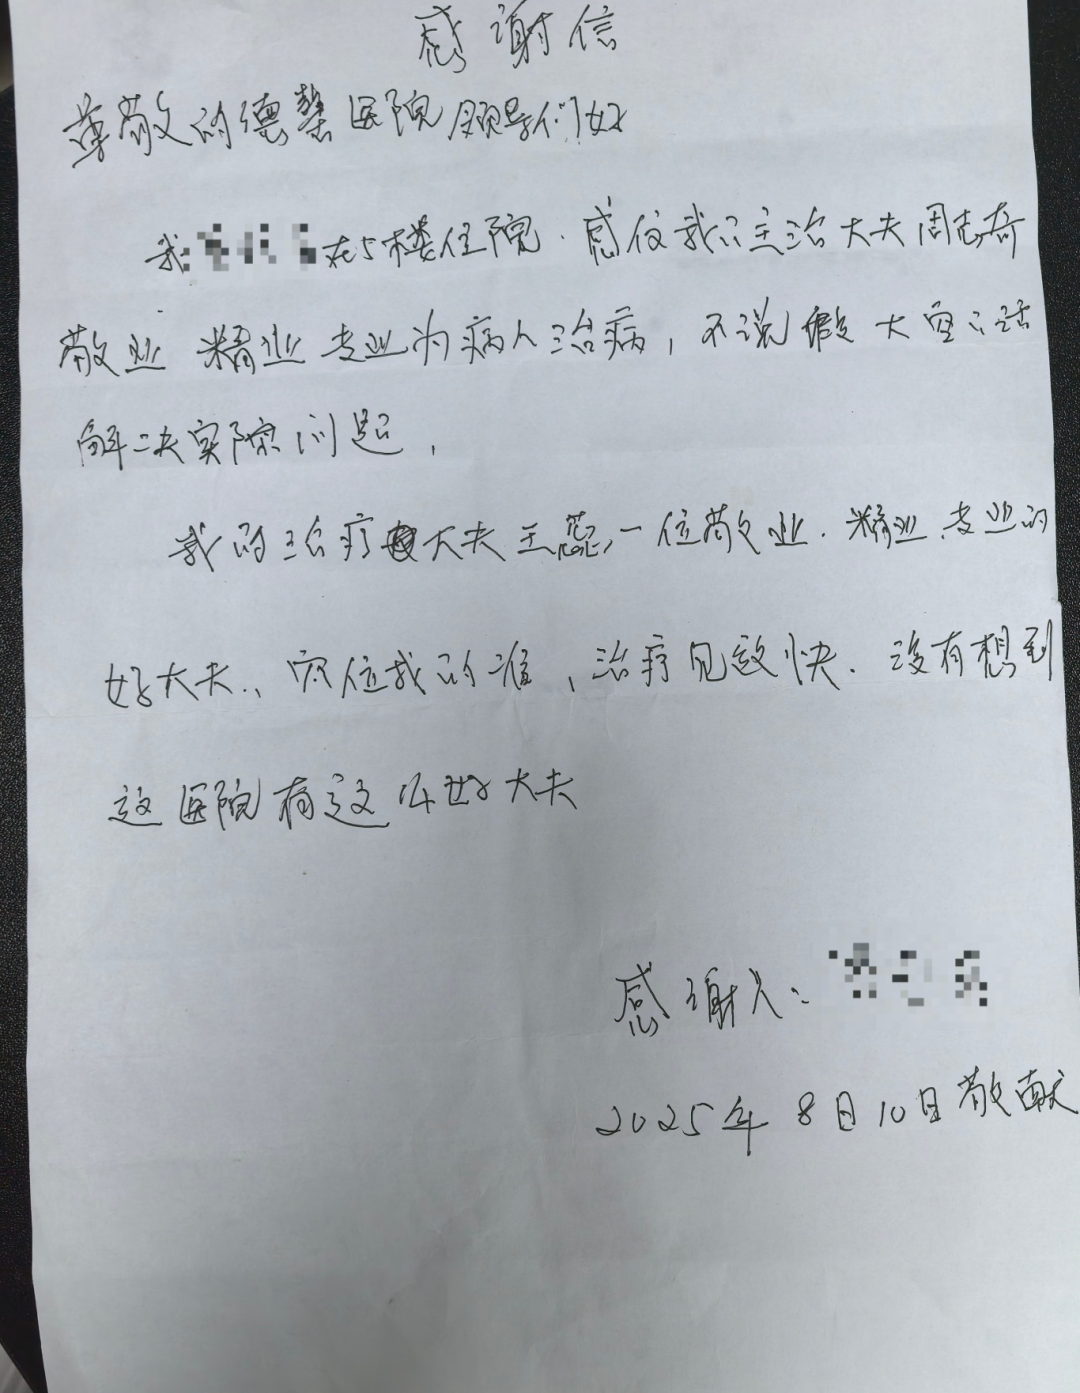 感谢信
尊敬的德馨医院领导们好
我 在5楼住院.感仅我的主治大夫周志奇
敬业 精业 专业为病人治病,不说假大空的话
解决实际问题,
我的治疗大夫王蕊,一位敬业.精业.专业的
好大夫.、穴位找的准,治疗见效快.没有想到
这医院有这好大夫
感谢人:
2025年8月10日敬献